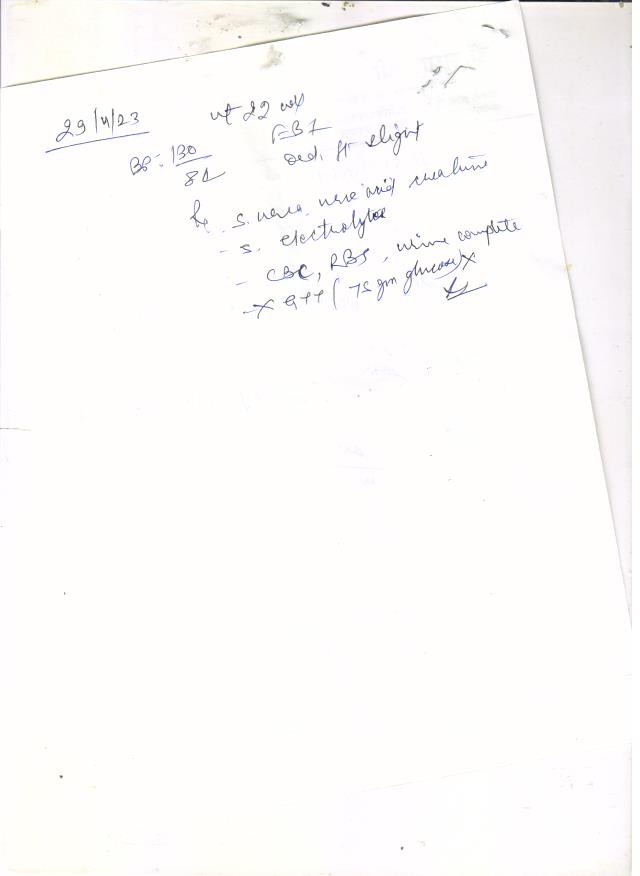 29/4/23 ut 22 wk
BP = 130/84
oed. ft slight
S. urea, uric acid creatinine
- S. electrolyte
- CBC, RBS, urine complete
-X GTT (75 gm glucose) X